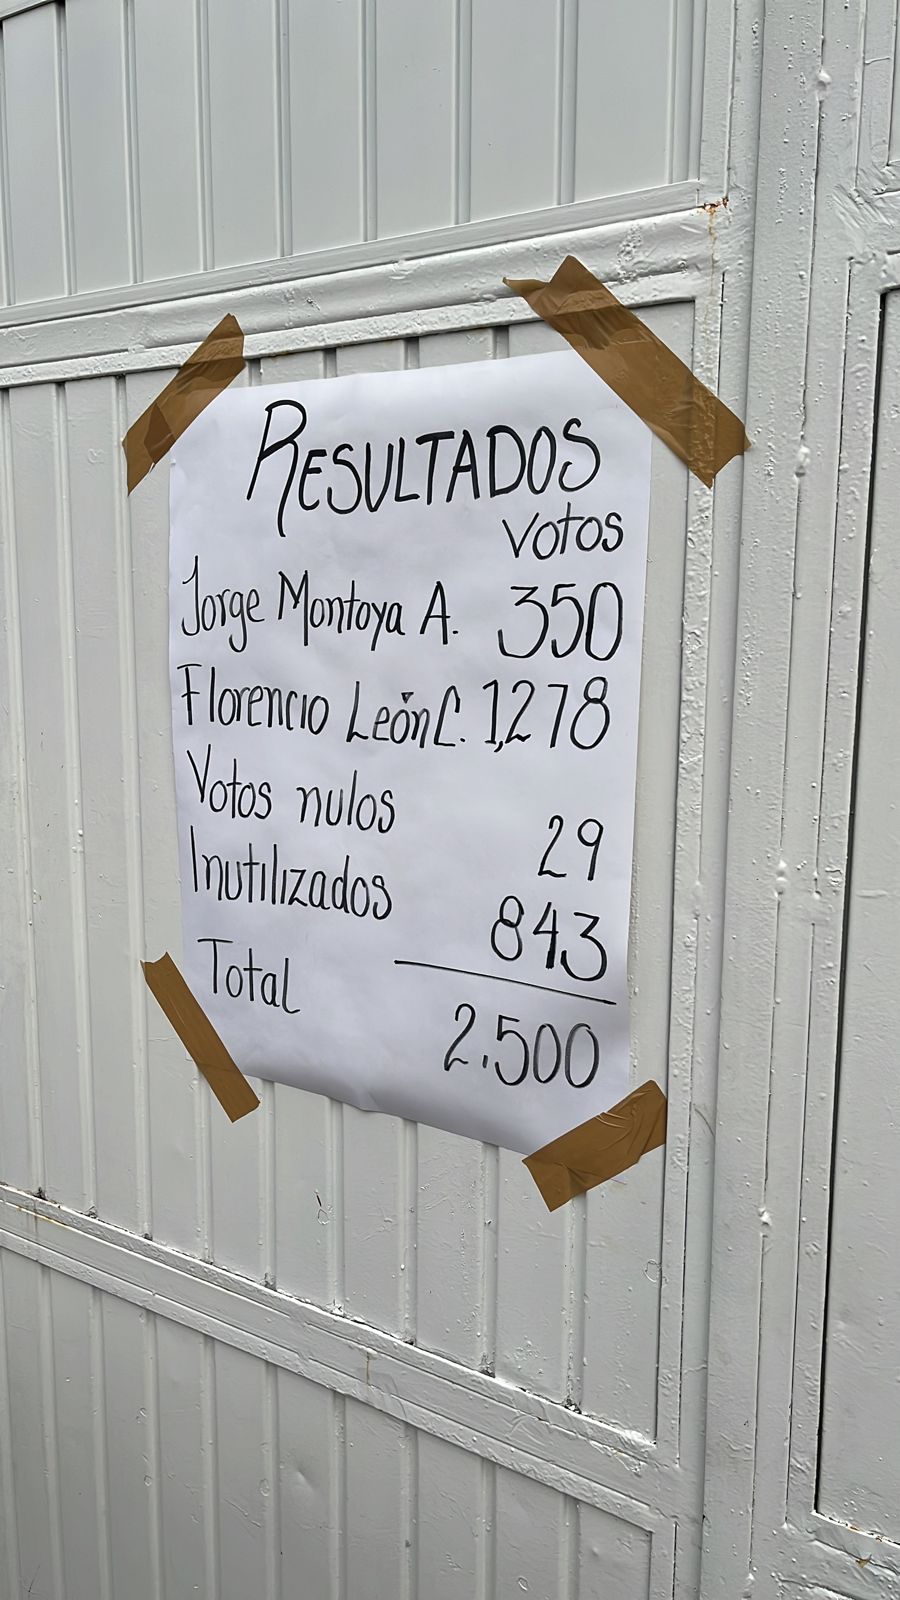 RESULTADOS
Votos
Jorge Montoya A. 350
Florencio León C. 1,278
Votos nulos 29
Inutilizados 843
Total 2.500